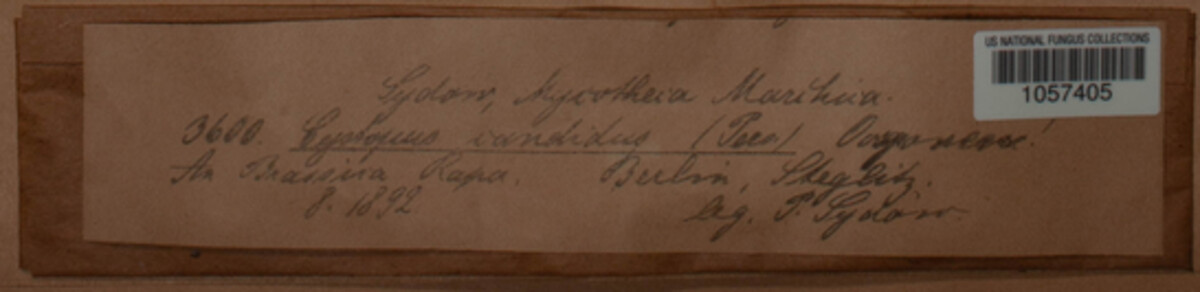 US NATIONAL FUNGUS COLLECTIONS
1057405
Sydow, Mycotheca Marchica.
3600. Cystopus candidus (Pers) Oogonien!
An Brassica Rapa. Berlin, Steglitz.
8. 1892 leg. P. Sydow.